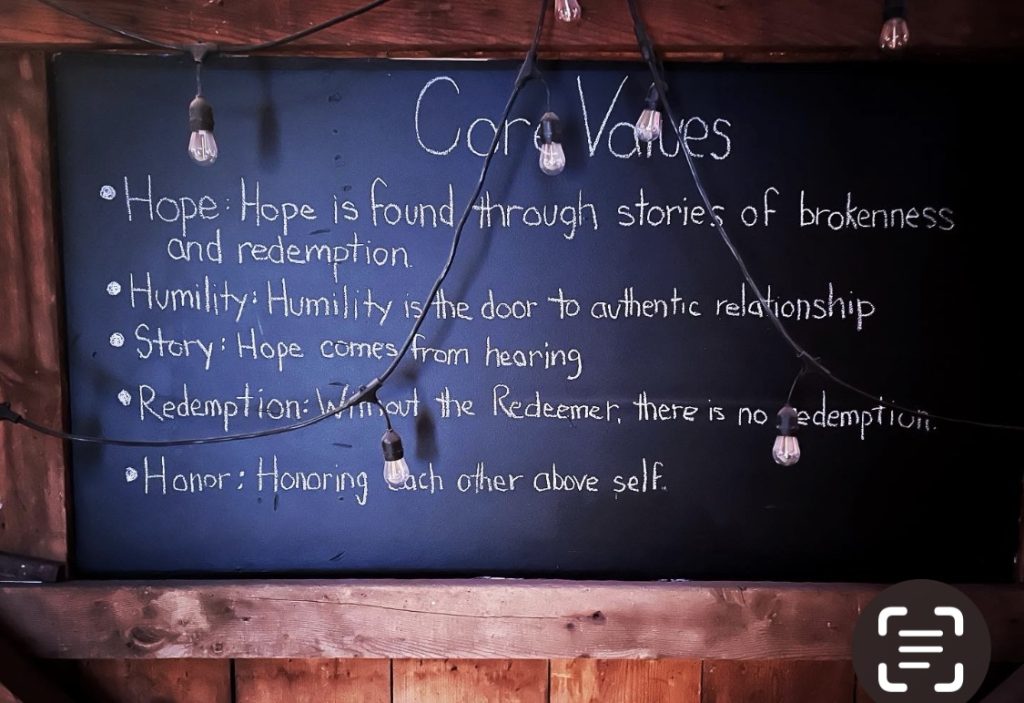 Core Values
• Hope: Hope is found through stories of brokenness
and redemption.
• Humility: Humility is the door to authentic relationship
• Story: Hope comes from hearing
• Redemption: Without the Redeemer, there is no redemption.
• Honor: Honoring each other above self.